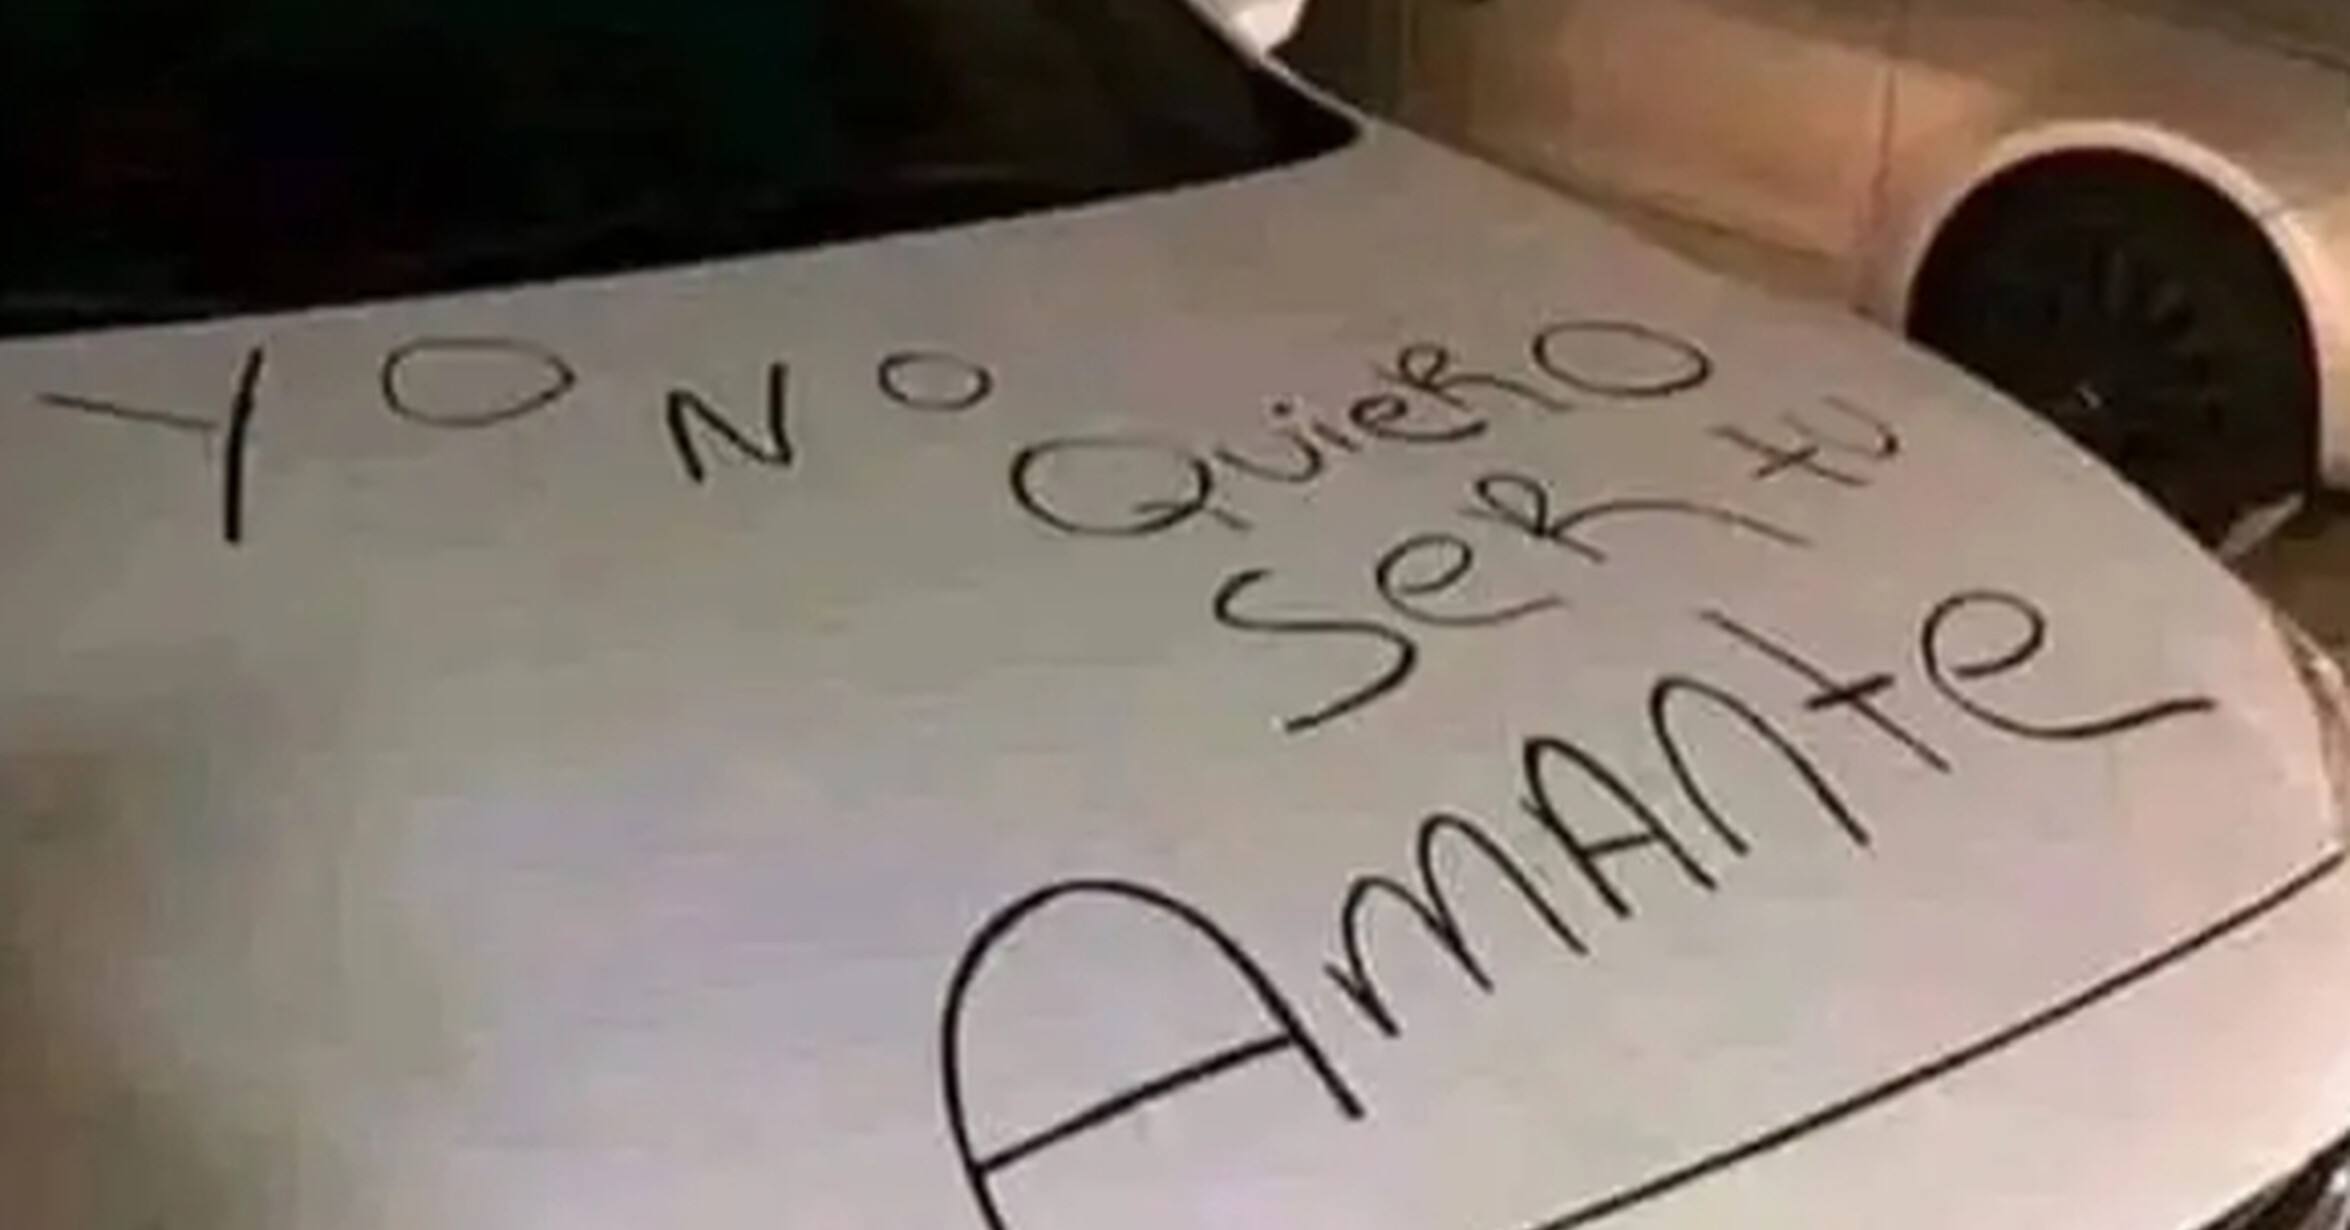 YO NO QuieRO
SeR tu
AmANte